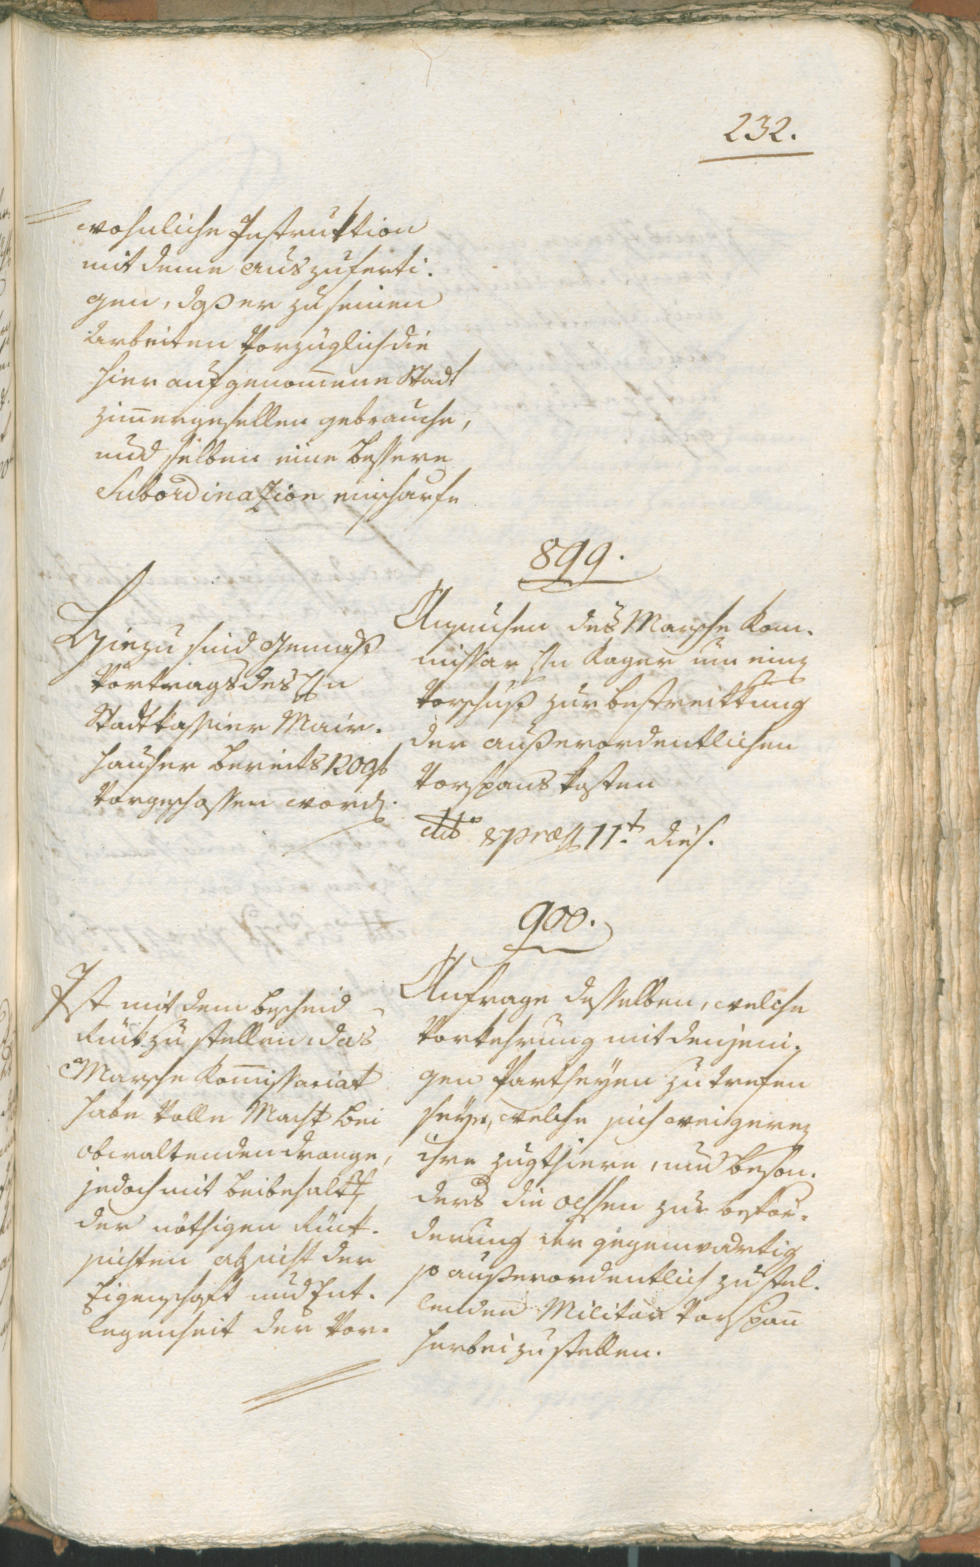 232.
wohnliche Instruktion
mit deme auszuferti-
gen, daß er zu seinen
Arbeiten Vorzüglich die
hier aufgenom̄ene Stadt
zim̄ergesellen gebrauche,
und selben eine bessere
Subordinazion einscharfe
899.
Ansuchen des Marsche Kom-
missar Hn Kager um einen
Vorschuß zur bestreittung
der außerordentlichen
Vorspans kosten
dto & præs 11t dies.
Hiezu sind gemäß
Vortrags des Hn
Stadtkassier Mair-
hauser bereits 120 f
Vorgeschossen worden.
900.
Anfrage desselben, welche
Vorkehrung mit denjeni-
gen Partheyen zu trefen
seye, welche sich weigeren
ihre zugthiere, und beson-
ders die ochsen zur beför-
derung der gegenwärtig
so außerordentlich zu stel-
lenden Militar Vorspan̄
herbeizustellen.
Ist mit dem bescheid
Rückzustellen, das
Marsche Kom̄issariat
habe Volle Macht bei
obwaltenden drange,
jedoch mit beibehaltung
der nöthigen Rück-
sichten absicht der
Eigenschaft und Ent-
legenheit der Vor-